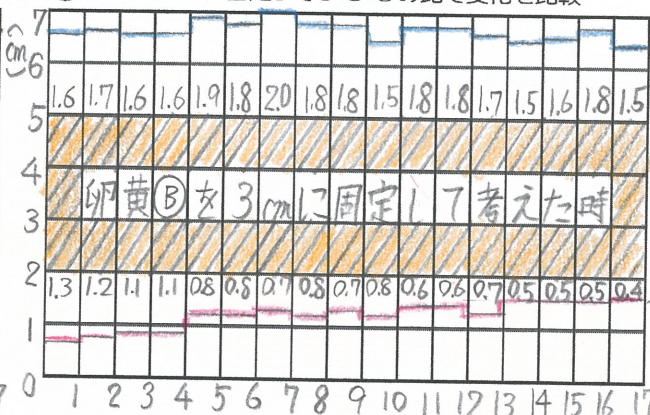 7
(cm)
6
1.6 1.7 1.6 1.6 1.9 1.8 2.0 1.8 1.8 1.5 1.8 1.8 1.7 1.5 1.6 1.8 1.5
5
4
卵黄Ⓑを3cmに固定して考えた時
3
2
1.3 1.2 1.1 1.1 0.8 0.8 0.7 0.8 0.7 0.8 0.6 0.6 0.7 0.5 0.5 0.5 0.4
1
0
1 2 3 4 5 6 7 8 9 10 11 12 13 14 15 16 17